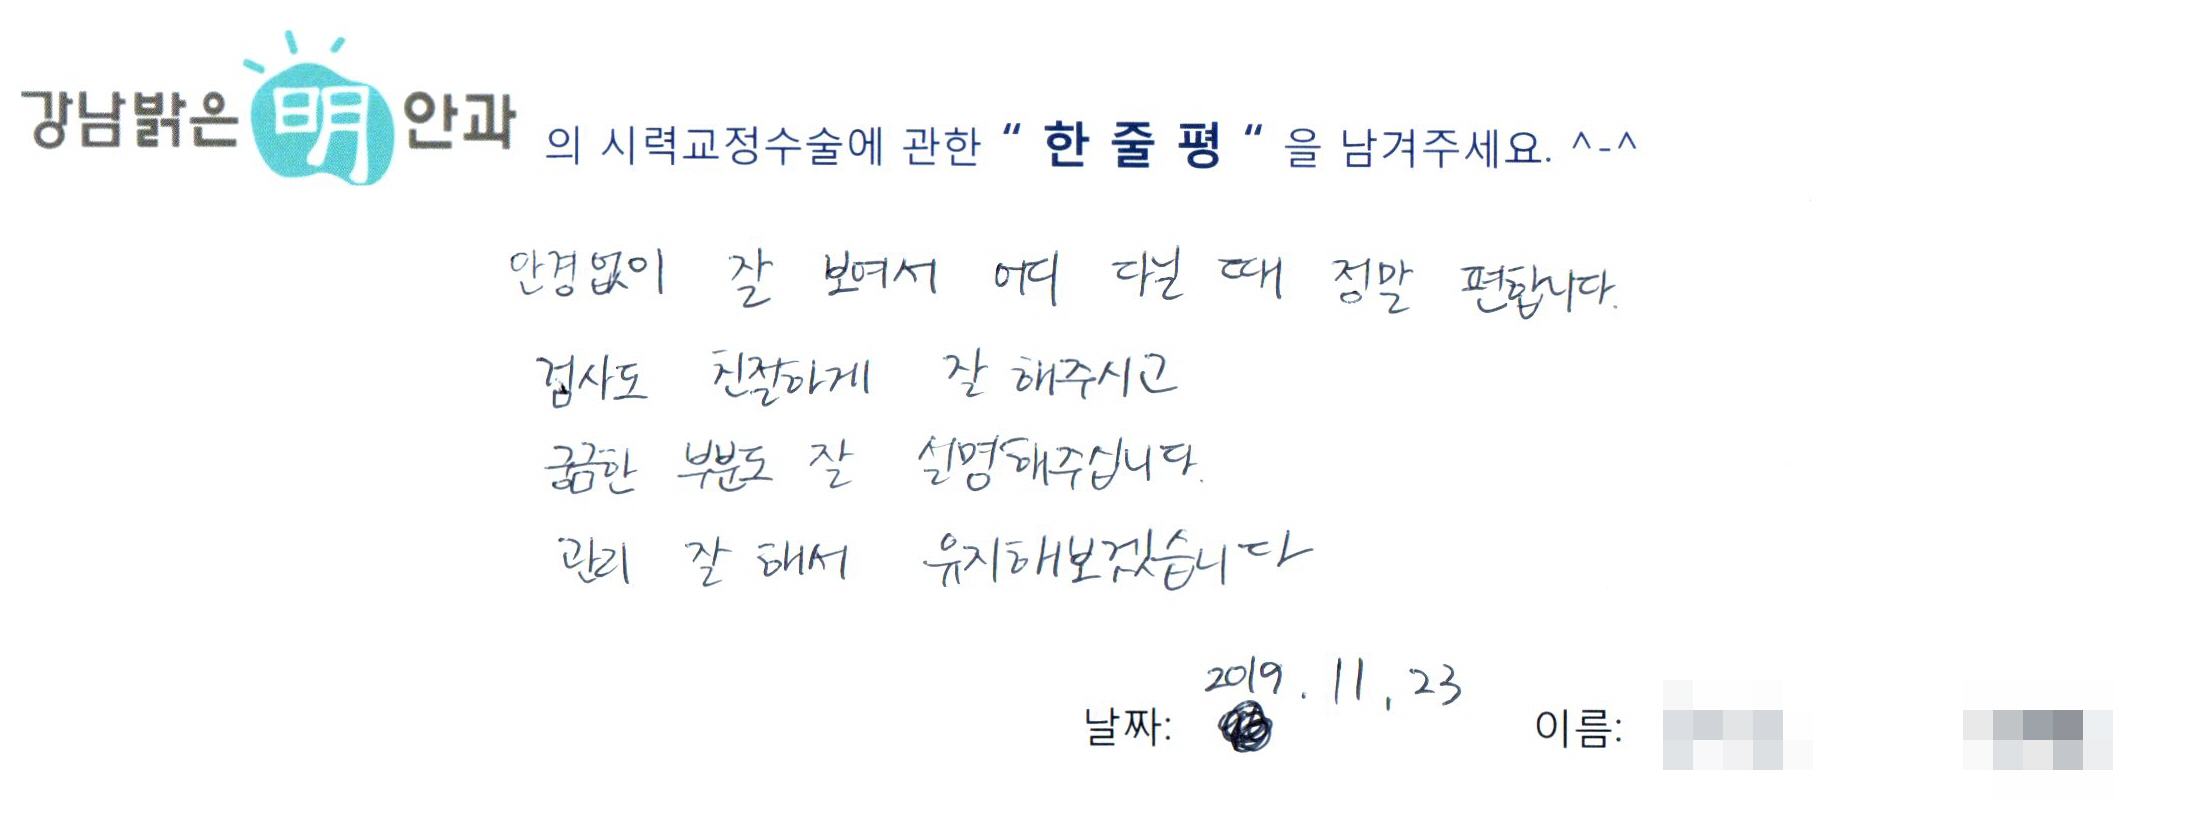 강남밝은 明 안과 의 시력교정수술에 관한 " 한 줄 평 " 을 남겨주세요. ^-^
안경없이 잘 보여서 어디 다닐 때 정말 편합니다.
검사도 친절하게 잘 해주시고
궁금한 부분도 잘 설명해주십니다.
관리 잘 해서 유지해보겠습니다
2019. 11. 23
날짜: 이름: